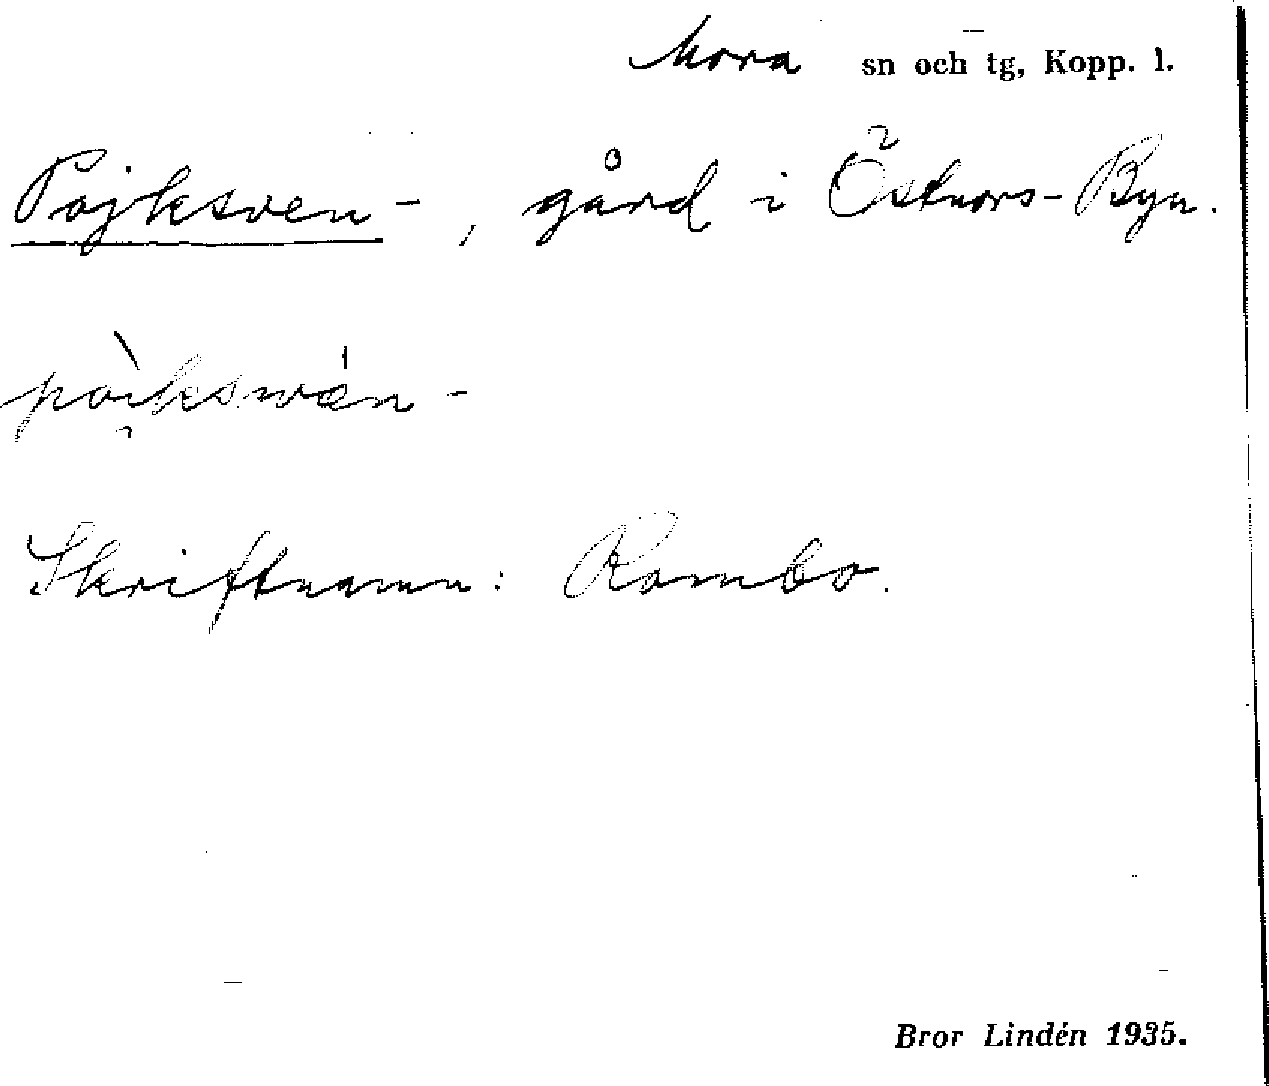 Mora sn och tg, Kopp. l.
Pojksven-, gård i Östnors-Byn.
pòi̯kswä́n-
Skriftnamn: Rombo.
Bror Lindén 1935.